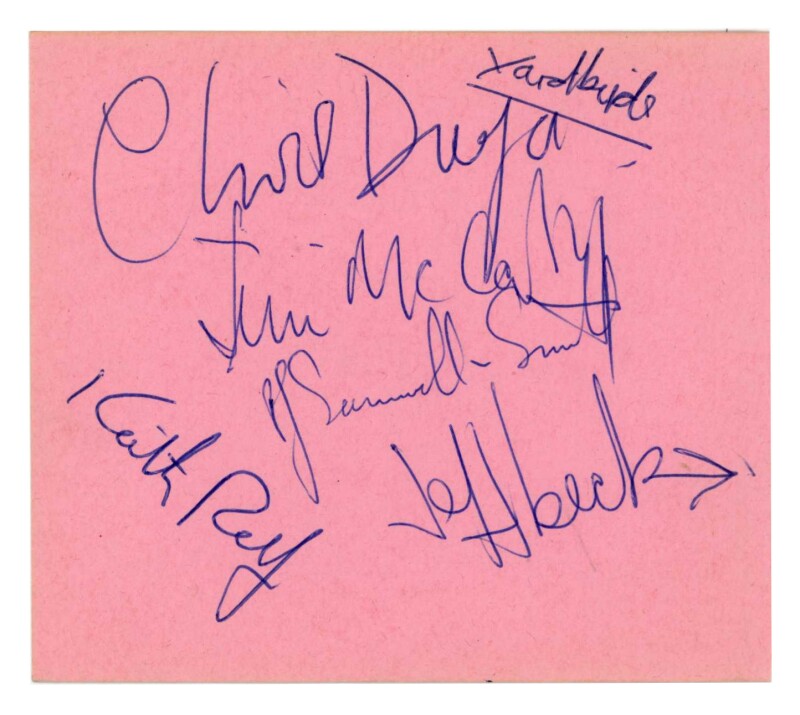 Yardbirds
Chris Dreja
Jim McCarty
PJ Samwell-Smith
Keith Relf
Jeff Beck